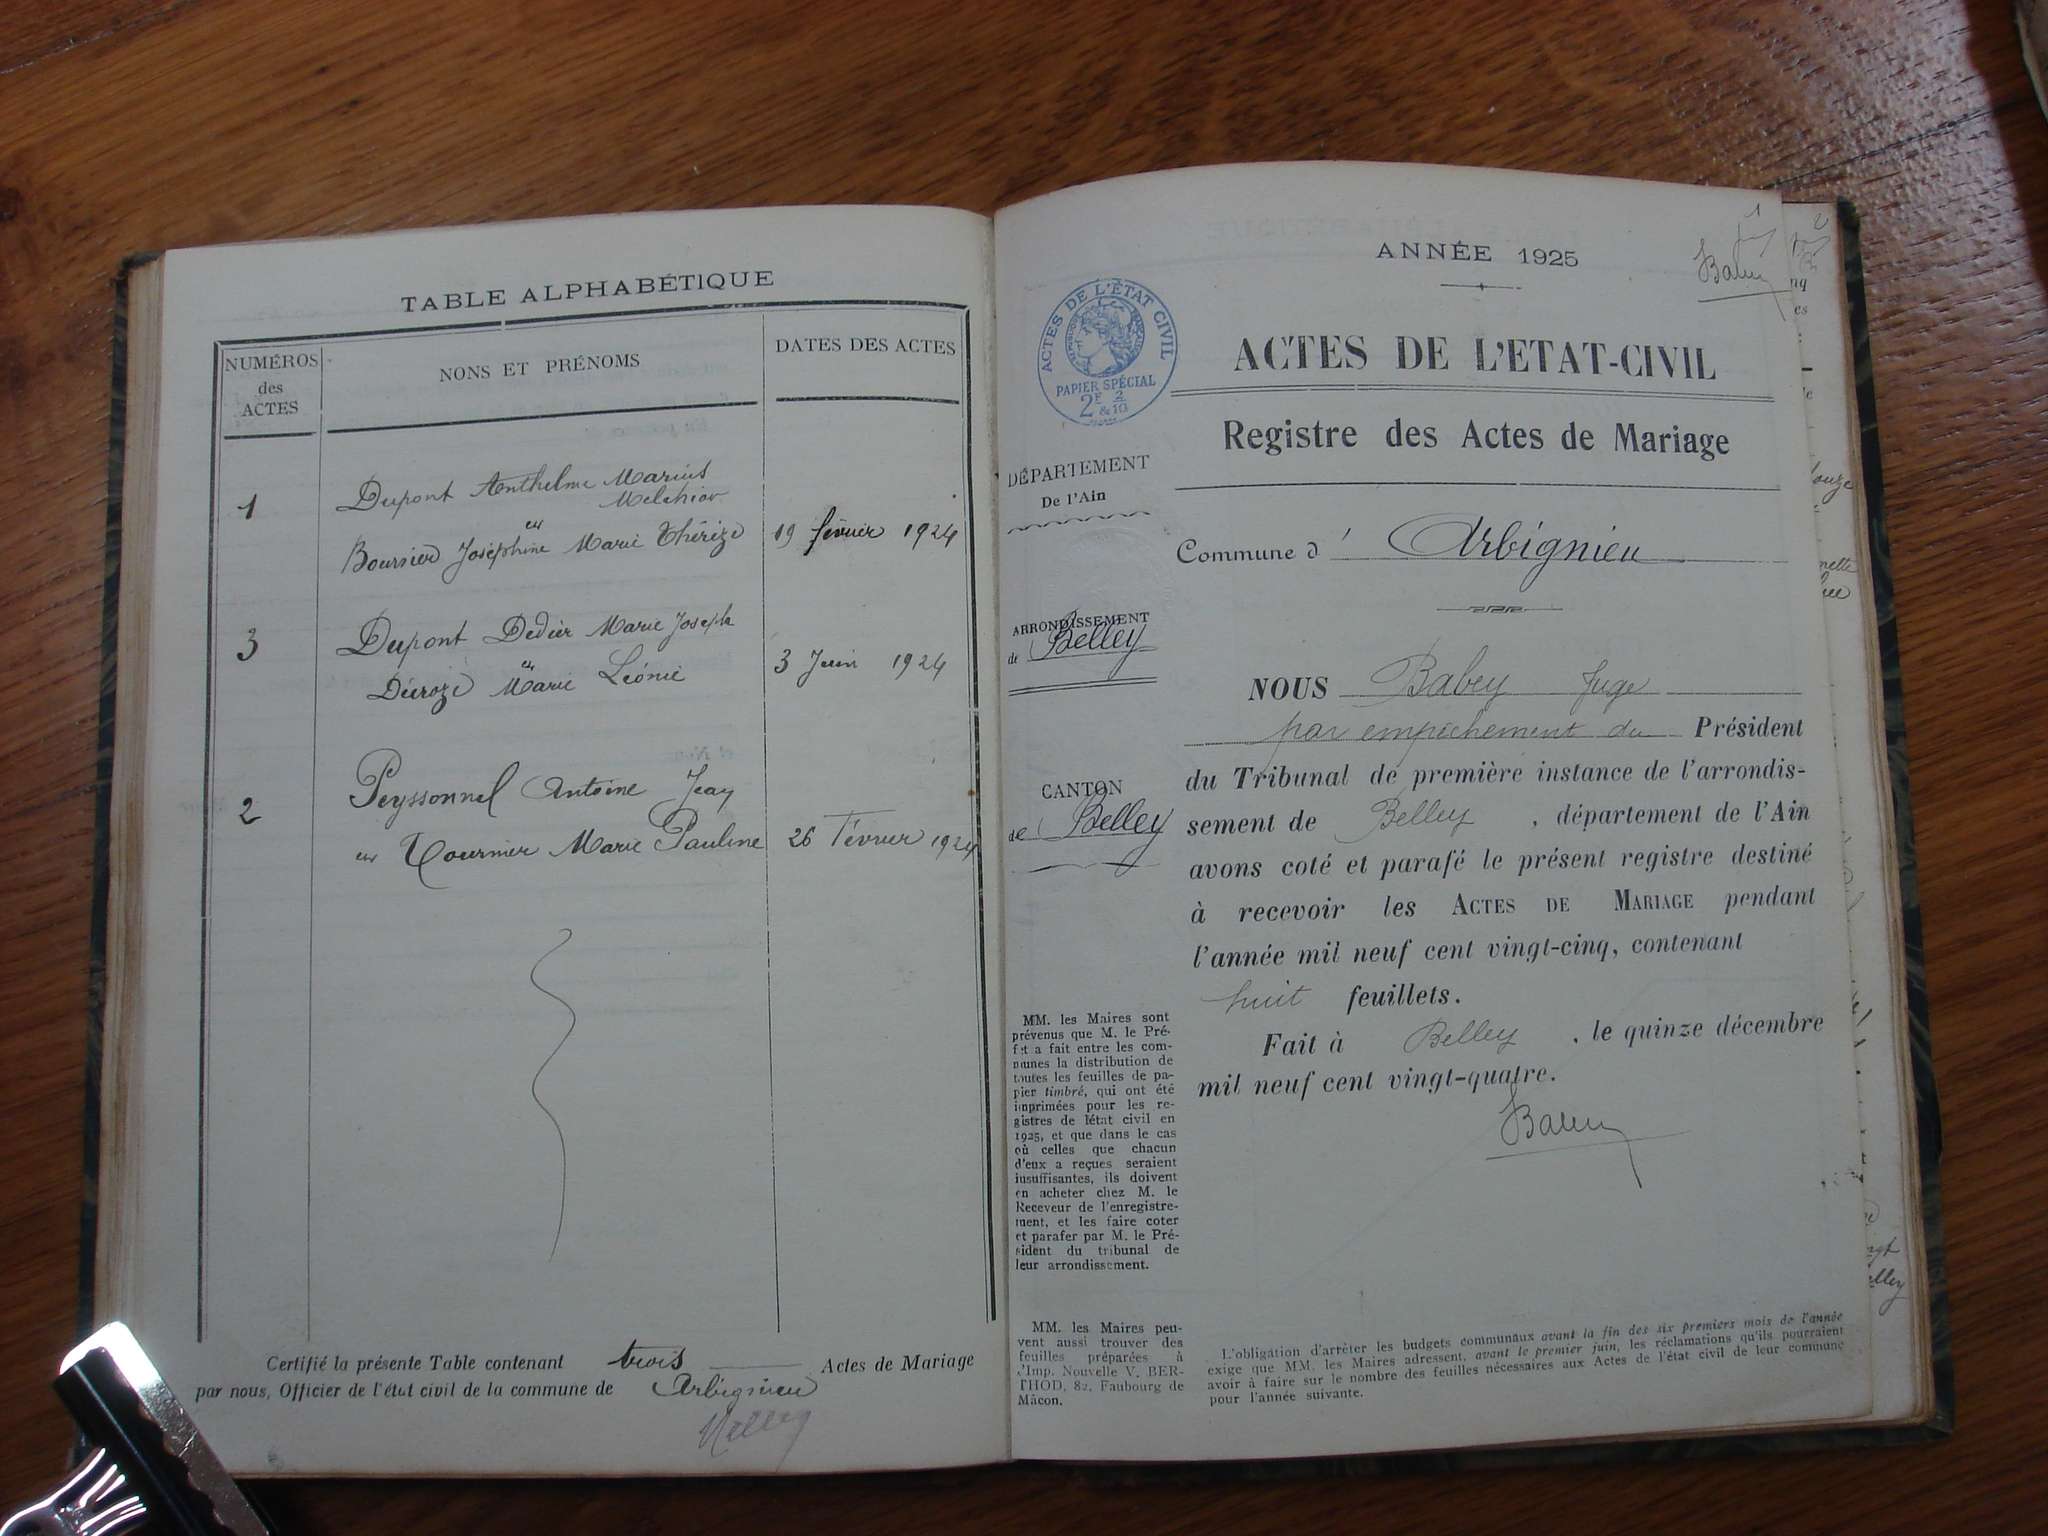 TABLE ALPHABÉTIQUE
NUMÉROS
des
ACTES
NONS ET PRÉNOMS
DATES DES ACTES
1
Dupont Anthelme Marius
Melchior
et
Boursier Joséphine Marie Thérèze
19 février 1924
3
Dupont Dedier Marie Joseph
et
Décroze Marie Léonie
3 Juin 1924
2
Peyssonnel Antoine Jean
et Tournier Marie Pauline
26 Février 1924
Certifié la présente Table contenant trois Actes de Mariage
par nous, Officier de l'état civil de la commune de Arbignieu
ANNÉE 1925
1
2
ACTES DE L'ÉTAT CIVIL
RÉPUBLIQUE FRANÇAISE
PAPIER SPÉCIAL
2F 2
& 10
ACTES DE L'ETAT-CIVIL
Registre des Actes de Mariage
DÉPARTEMENT
De l'Ain
Commune d' Arbignieu
ARRONDISSEMENT
de Belley
CANTON
de Belley
NOUS Babey Juge
par empêchement du Président
du Tribunal de première instance de l'arrondis-
sement de Belley, département de l'Ain
avons coté et parafé le présent registre destiné
à recevoir les ACTES DE MARIAGE pendant
l'année mil neuf cent vingt-cinq, contenant
huit feuillets.
Fait à Belley, le quinze décembre
mil neuf cent vingt-quatre.
MM. les Maires sont
prévenus que M. le Pré-
fet a fait entre les com-
munes la distribution de
toutes les feuilles de pa-
pier timbré, qui ont été
imprimées pour les re-
gistres de l'état civil en
1925, et que dans le cas
où celles que chacun
d'eux a reçues seraient
insuffisantes, ils doivent
en acheter chez M. le
Receveur de l'enregistre-
ment, et les faire coter
et parafer par M. le Pré-
sident du tribunal de
leur arrondissement.
MM. les Maires peu-
vent aussi trouver des
feuilles préparées à
l'Imp. Nouvelle V. BER-
THOD, 82, Faubourg de
Mâcon.
L'obligation d'arrêter les budgets communaux avant la fin des six premiers mois de l'année
exige que MM. les Maires adressent, avant le premier juin, les réclamations qu'ils pourraient
avoir à faire sur le nombre des feuilles nécessaires aux Actes de l'état civil de leur commune
pour l'année suivante.